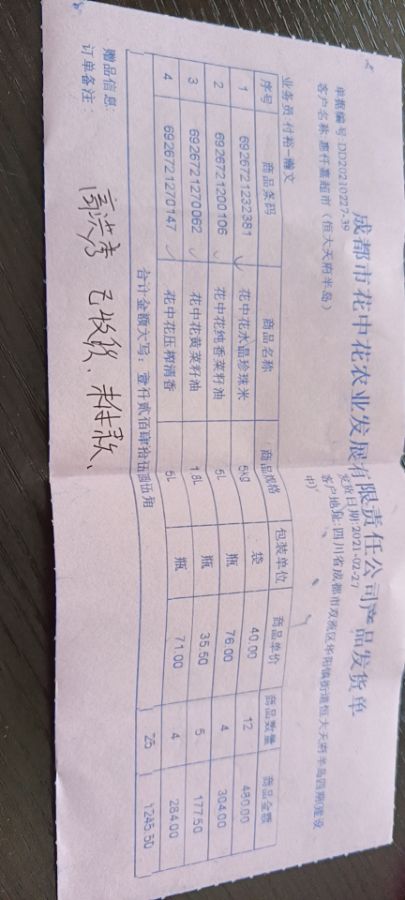 成都市花中花农业发展有限责任公司产品发货单
单据编号:DD20210227-39 发货日期:2021-02-27
客户名称:惠仟嘉超市(恒大天府半岛) 客户地址:四川省成都市双流区华阳镇街道恒大天府半岛四期(建设中)
业务员:付裕-瀚文
序号 商品条码 商品名称 商品规格 包装单位 商品单价 商品数量 商品金额
1 6926721232381 花中花水晶珍珠米 5kg 袋 40.00 12 480.00
2 6926721200106 花中花纯香菜籽油 5L 瓶 76.00 4 304.00
3 6926721270062 花中花黄菜籽油 1.8L 瓶 35.50 5 177.50
4 6926721270147 花中花压榨清香 5L 瓶 71.00 4 284.00
合计金额大写:壹仟贰佰肆拾伍圆伍角 25 1245.50
赠品信息:
订单备注:
已收货、未付款、